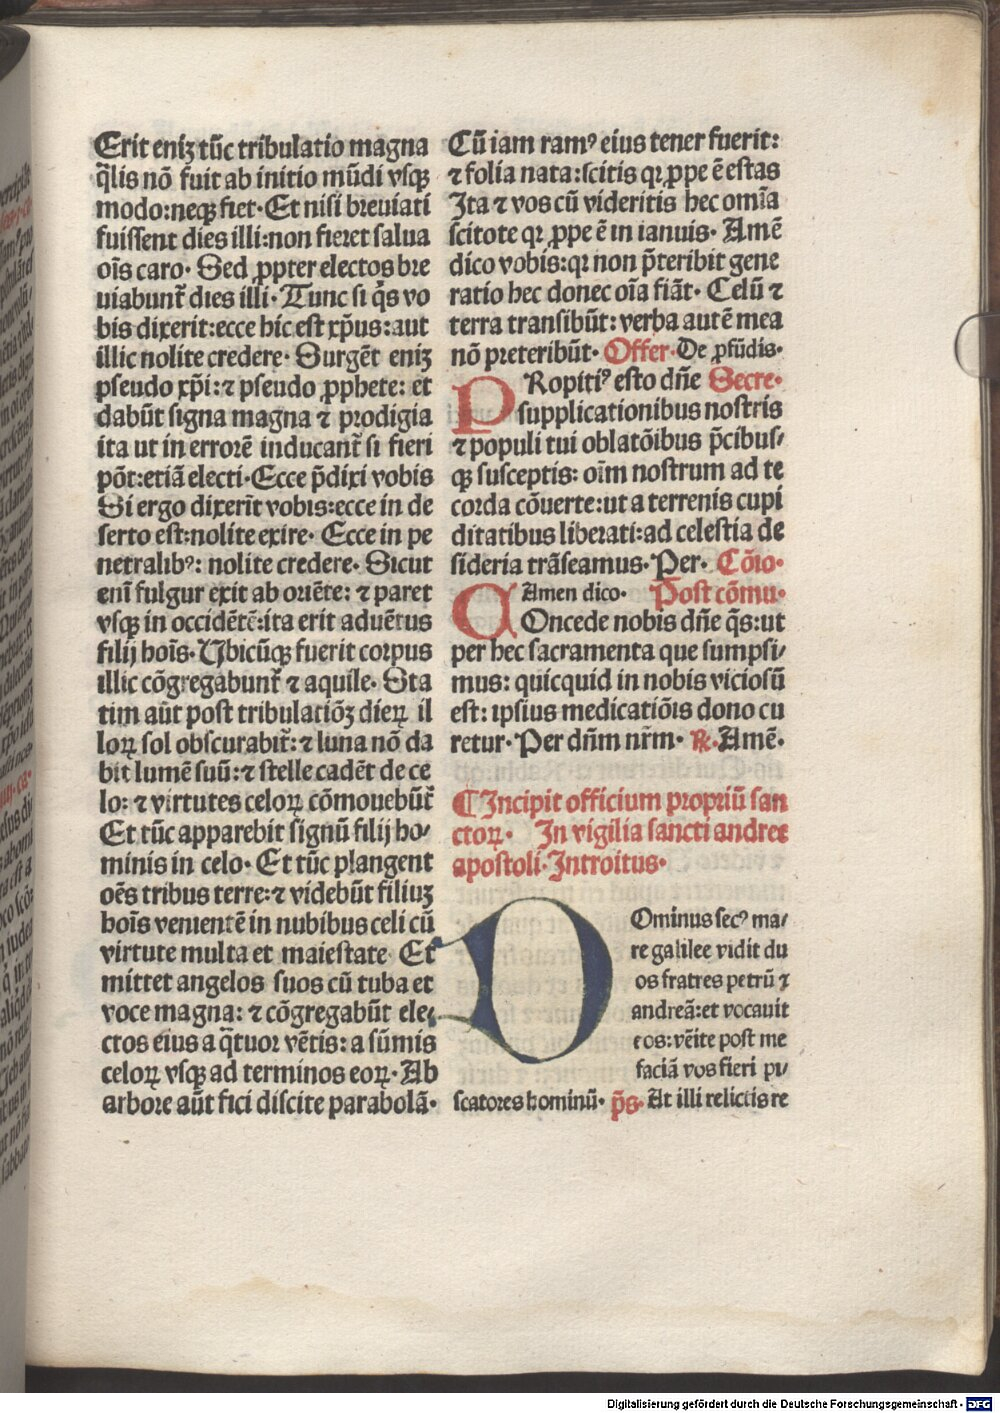 Erit eniȝ tūc tribulatio magna
q̄lis nō fuit ab initio mūdi vsqꝫ
modo:neqꝫ fiet·Et nisi breuiati
fuissent dies illi:non fieret salua
oīs caro· Sed ꝓpter electos bre
uiabunt̄ dies illi·Tunc si q̄s vo
bis dixerit:ecce hic est xp̄us:aut
illic nolite credere· Surgēt eniȝ
pseudo xp̄i:⁊ pseudo ꝓphete: et
dabūt signa magna ⁊ prodigia
ita ut in errorē inducant̄ si fieri
pōt:etiā electi·Ecce p̄dixi vobis
Si ergo dixerīt vobis:ecce in de
serto est:nolite exire· Ecce in pe
netralibꝰ: nolite credere· Sicut
enī fulgur exit ab oriēte: ⁊ paret
vsqꝫ in occidētē:ita erit aduētus
filij hoīs·Ubicūqꝫ fuerit corpus
illic cōgregabunt̄ ⁊ aquile· Sta
tim aūt post tribulatiōȝ dieꝝ il
loꝝ sol obscurabit̄: ⁊ luna nō da
bit lumē suū:⁊ stelle cadēt de ce
lo: ⁊ virtutes celoꝝ cōmouebūt̄
Et tūc apparebit signū filij ho⸗
minis in celo· Et tūc plangent
oēs tribus terre:⁊ videbūt filiuȝ
hoīs venientē in nubibus celi cū
virtute multa et maiestate Et
mittet angelos suos cū tuba et
voce magna: ⁊ cōgregabūt ele⸗
ctos eius a q̄tuor vētis: a sūmis
celoꝝ vsqꝫ ad terminos eoꝝ·Ab
arbore aūt fici discite parabolā·
Cū iam ramꝰ eius tener fuerit:
⁊ folia nata:scitis qꝛ ꝓpe ē estas
Ita ⁊ vos cū videritis hec omīa
scitote qꝛ ꝓpe ē in ianuis· Amē
dico vobis:qꝛ non p̄teribit gene
ratio hec donec oīa fiāt· Celū ⁊
terra transibūt: verba autē mea
nō preteribūt· Offer·De ꝓfūdis·
PRopitiꝰ esto dn̄e Secre·
supplicationibus nostris
⁊ populi tui oblatōibus p̄cibus⸗
qꝫ susceptis: oīm nostrum ad te
corda cōuerte:ut a terrenis cupi
ditatibus liberati:ad celestia de
sideria trāseamus·Per· Cōīo·
Amen dico· Post cōmu·
COncede nobis dn̄e q̄s:ut
per hec sacramenta que sumpsi⸗
mus: quicquid in nobis viciosū
est: ipsius medicatiōis dono cu
retur·Per dn̄m nr̄m· ℟·Amē·
¶Incipit officium propriū san
ctoꝝ· In vigilia sancti andree
apostoli·Introitus·
DOminus secꝰ ma⸗
re galilee vidit du
os fratres petrū ⁊
andreā:et vocauit
eos:vēite post me
faciā vos fieri pi⸗
scatores hominū· p̄s· At illi relictis re
Digitalisierung gefördert durch die Deutsche Forschungsgemeinschaft - DFG